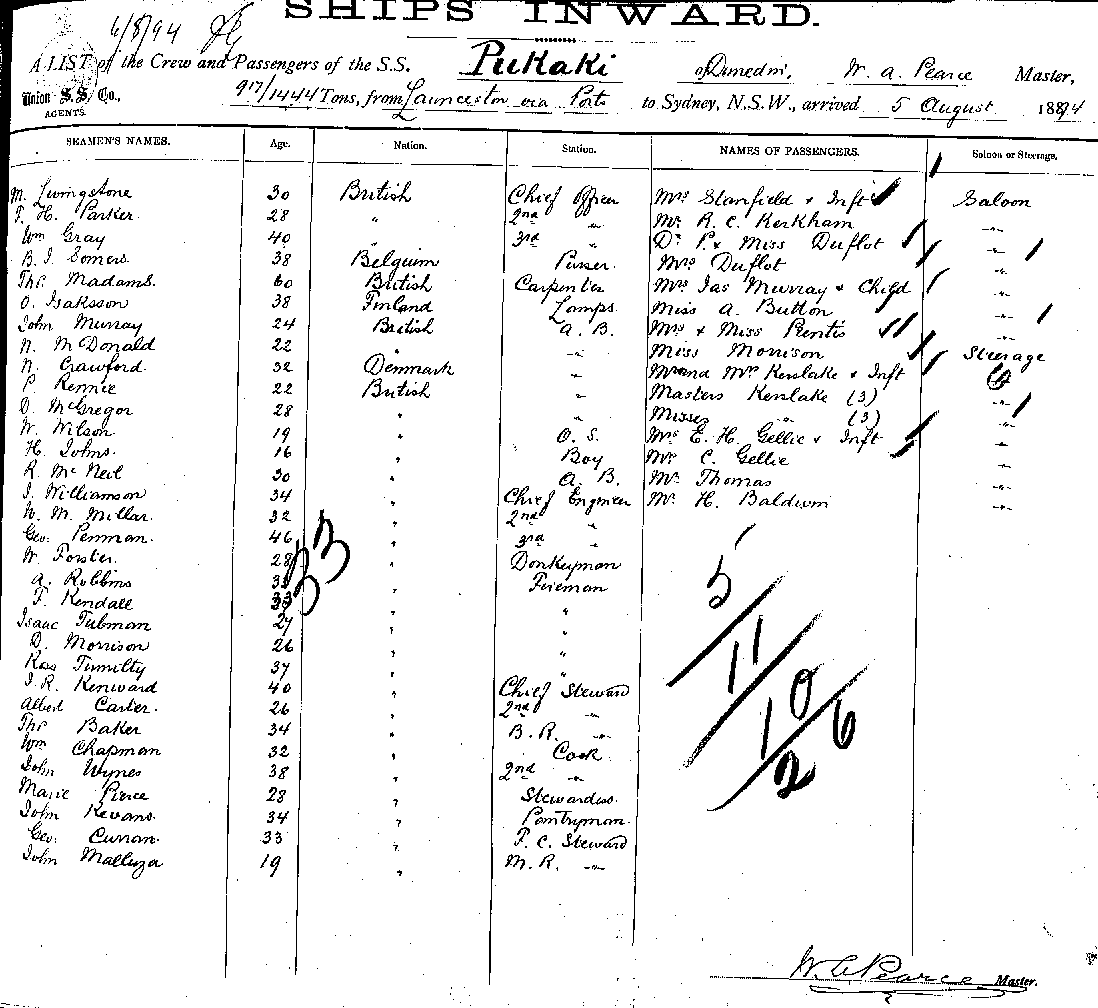 SHIPS INWARD.
6/8/94
A LIST of the Crew and Passengers of the S.S. Pukaki of Dunedin, W. A. Pearce Master,
Union S.S. Co., 917/1444 Tons, from Launceston via Ports to Sydney, N.S.W., arrived 5 August 1894
AGENTS.
SEAMEN'S NAMES. Age. Nation. Station. NAMES OF PASSENGERS. Saloon or Steerage.
M. Livingstone 30 British Chief Officer Mrs Stanfield & Inft Saloon
F. H. Parker 28 " 2nd " Mr R. C. Kerkham "
Wm Gray 40 " 3rd " Dr P & Miss Duflot "
B. J. Somers 38 Belguim Purser Mrs Duflot "
Thos Madams. 60 British Carpenter Mrs Jas Murray & Child "
O. Isaksson 38 Finland Lamps Miss A. Button "
John Murray 24 British A. B. Mrs & Miss Prentis "
N. McDonald 22 " " Miss Morrison Steerage
N. Crawford. 32 Denmark " Mr and Mrs Kerslake & Inft
P. Rennie 22 British " Masters Kerslake (3) "
D. McGregor 28 " " Misses " (3) "
W. Wilson 19 " O. S. Mrs E. H. Gellie & Inft "
H. Johns. 16 " Boy Mr C. Gellie "
R. McNeil 30 " A. B. Mr Thomas "
J. Williamson 34 " Chief Engineer Mr H. Baldwin "
W. M. Millar. 32 " 2nd "
Geo. Penman. 46 " 3rd "
W. Forster. 28 " Donkeyman
A. Robbins " Fireman
F. Kendall " "
Isaac Tubman 27 " "
D. Morrison 26 " "
Ross Tumilty 37 " "
J. R. Kenward 40 " Chief Steward
Albert Carter. 26 " 2nd "
Thos Baker 34 " B. R. "
Wm Chapman 32 " Cook
John Wynes 38 " 2nd "
Marie Pierce 28 " Stewardess.
John Kevans. 34 " Pantryman.
Geo. Curran. 33 " F. C. Steward
John Malluza 19 " M. R. "
33
5/11/10/26
W. A Pearce Master.